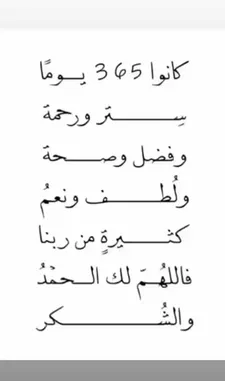 كانوا 365 يـومًا
سِـــــتر ورحمة
وفضل وصـــحة
ولُطـــف ونعمُ
كثـــــيرةٍ من ربنا
فاللهُمَ لك الـحمْدُ
والشُـــــكر